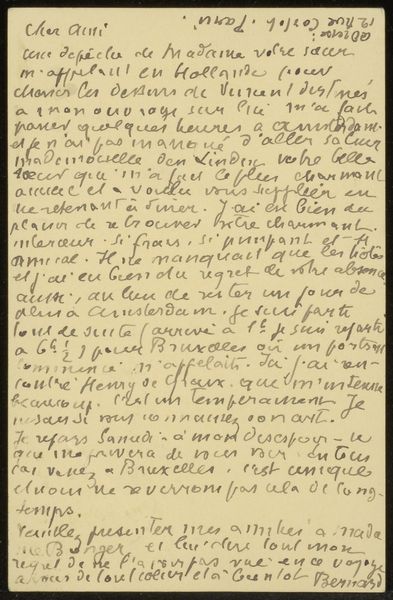 adresse
12 rue Cortot. Paris.
Cher ami
une depêche de Madame votre sœur
m'appelant en Hollande pour
choisir les dessins de Vincent destinés
a mon ouvrage sur lui m'a fait
passer quelques heures a Amsterdam
et je n'ai pas manqué d'aller saluer
Mademoiselle van der Linden votre belle
sœur qui m'a fait le plus charmant
accueil et a voulu vous suppléer en
me retenant à diner. J'ai eu bien du
plaisir de retrouver votre charmant
interieur si frais, si pimpant et si
amical. Il ne manquait que les hôtes
et j'ai eu bien du regret de votre absence
aussi, au lieu de rester un jour de
plus a Amsterdam je suis parti
tout de suite (arrivé à 1h je suis reparti
a 6h ½) pour Bruxelles où un portrait
commencé m'appelait. Ici j'ai ren-
contré Henry de Groux que m'intéresse
beaucoup. c'est un temperament. Je
ne sais si vous connaissez son art.
Je repars Samedi - à mon desespoir - ce
que me privera de vous voir en tous
cas venez a Bruxelles, c'est unique
et nous ne reverrons pas cela de long-
temps.
Veuillez presenter mes amitiés a Mada
me Bonger et lui dire tout mon
regret de ne l'avoir pas vue en ce voyage
a vous de tout cœur et à bientot Bernard